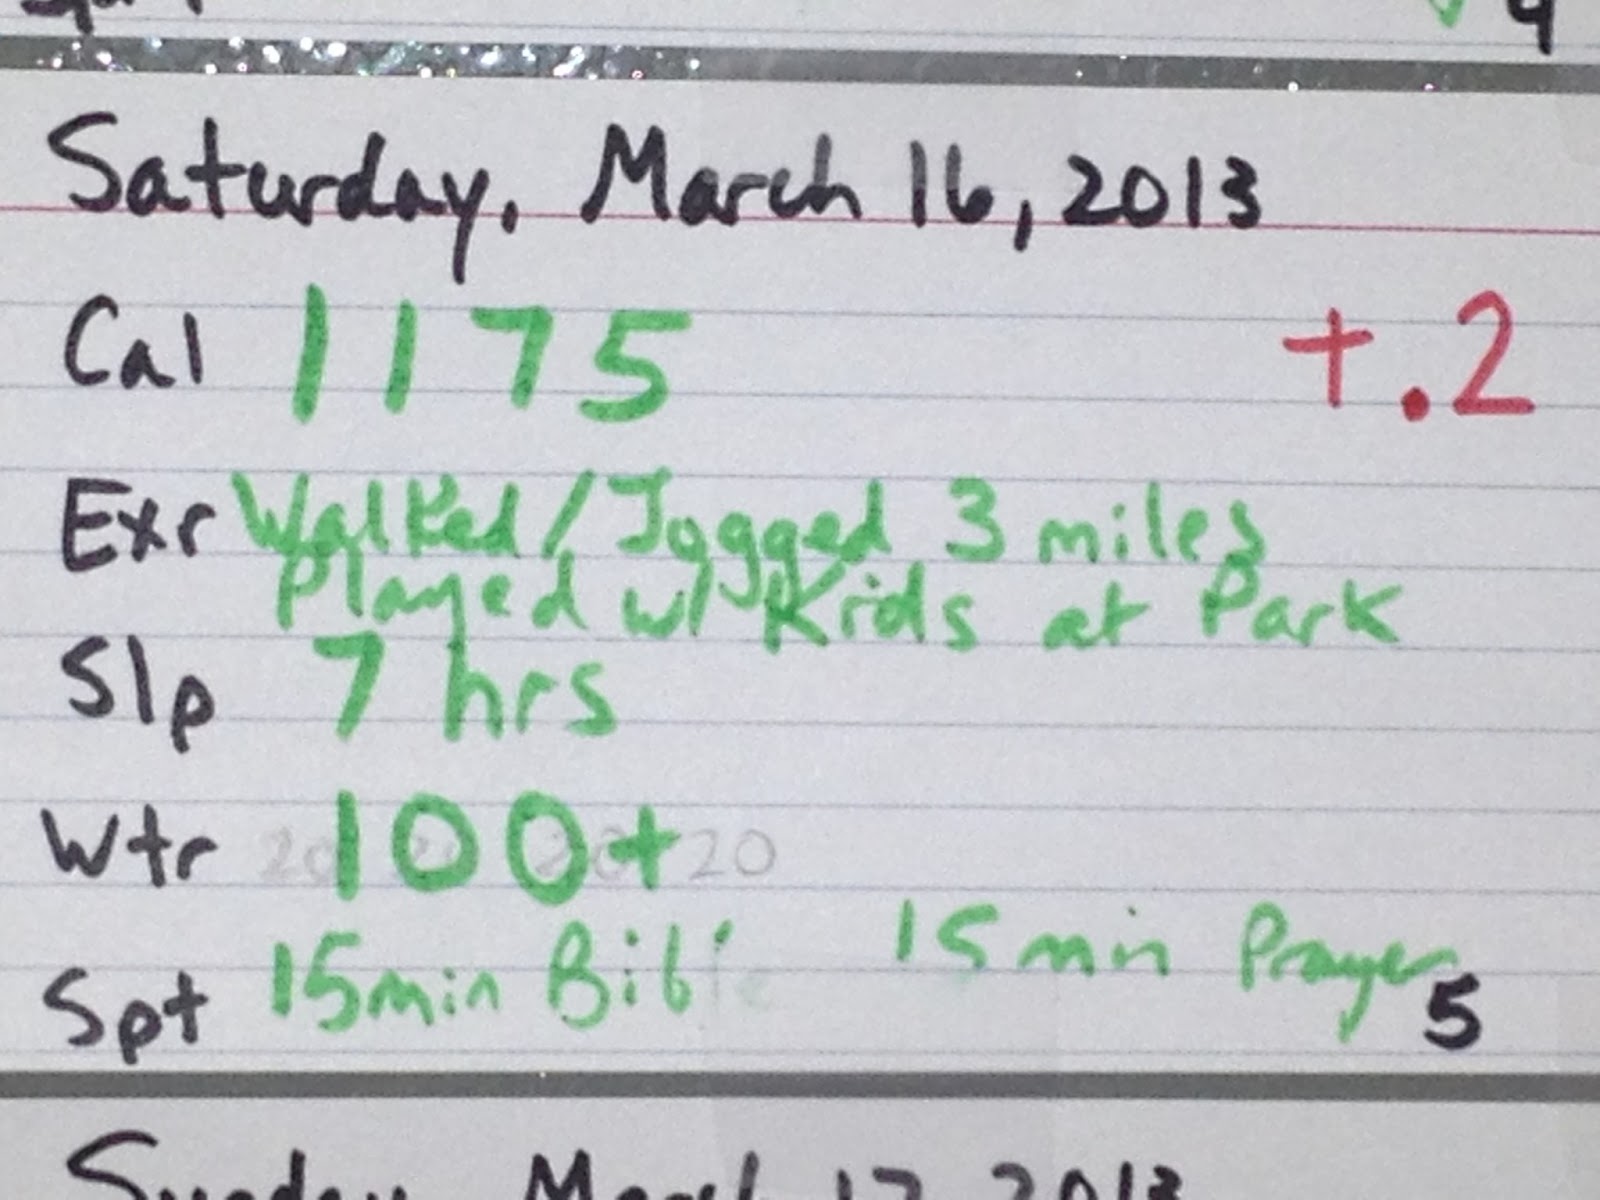 4
Saturday, March 16, 2013
Cal 1175 +.2
Exr Walked/Jogged 3 miles
played w/ Kids at Park
Slp 7 hrs
Wtr 100+ 20
Spt 15min Bible 15 min Prayer 5
Sunday, March 17, 2013